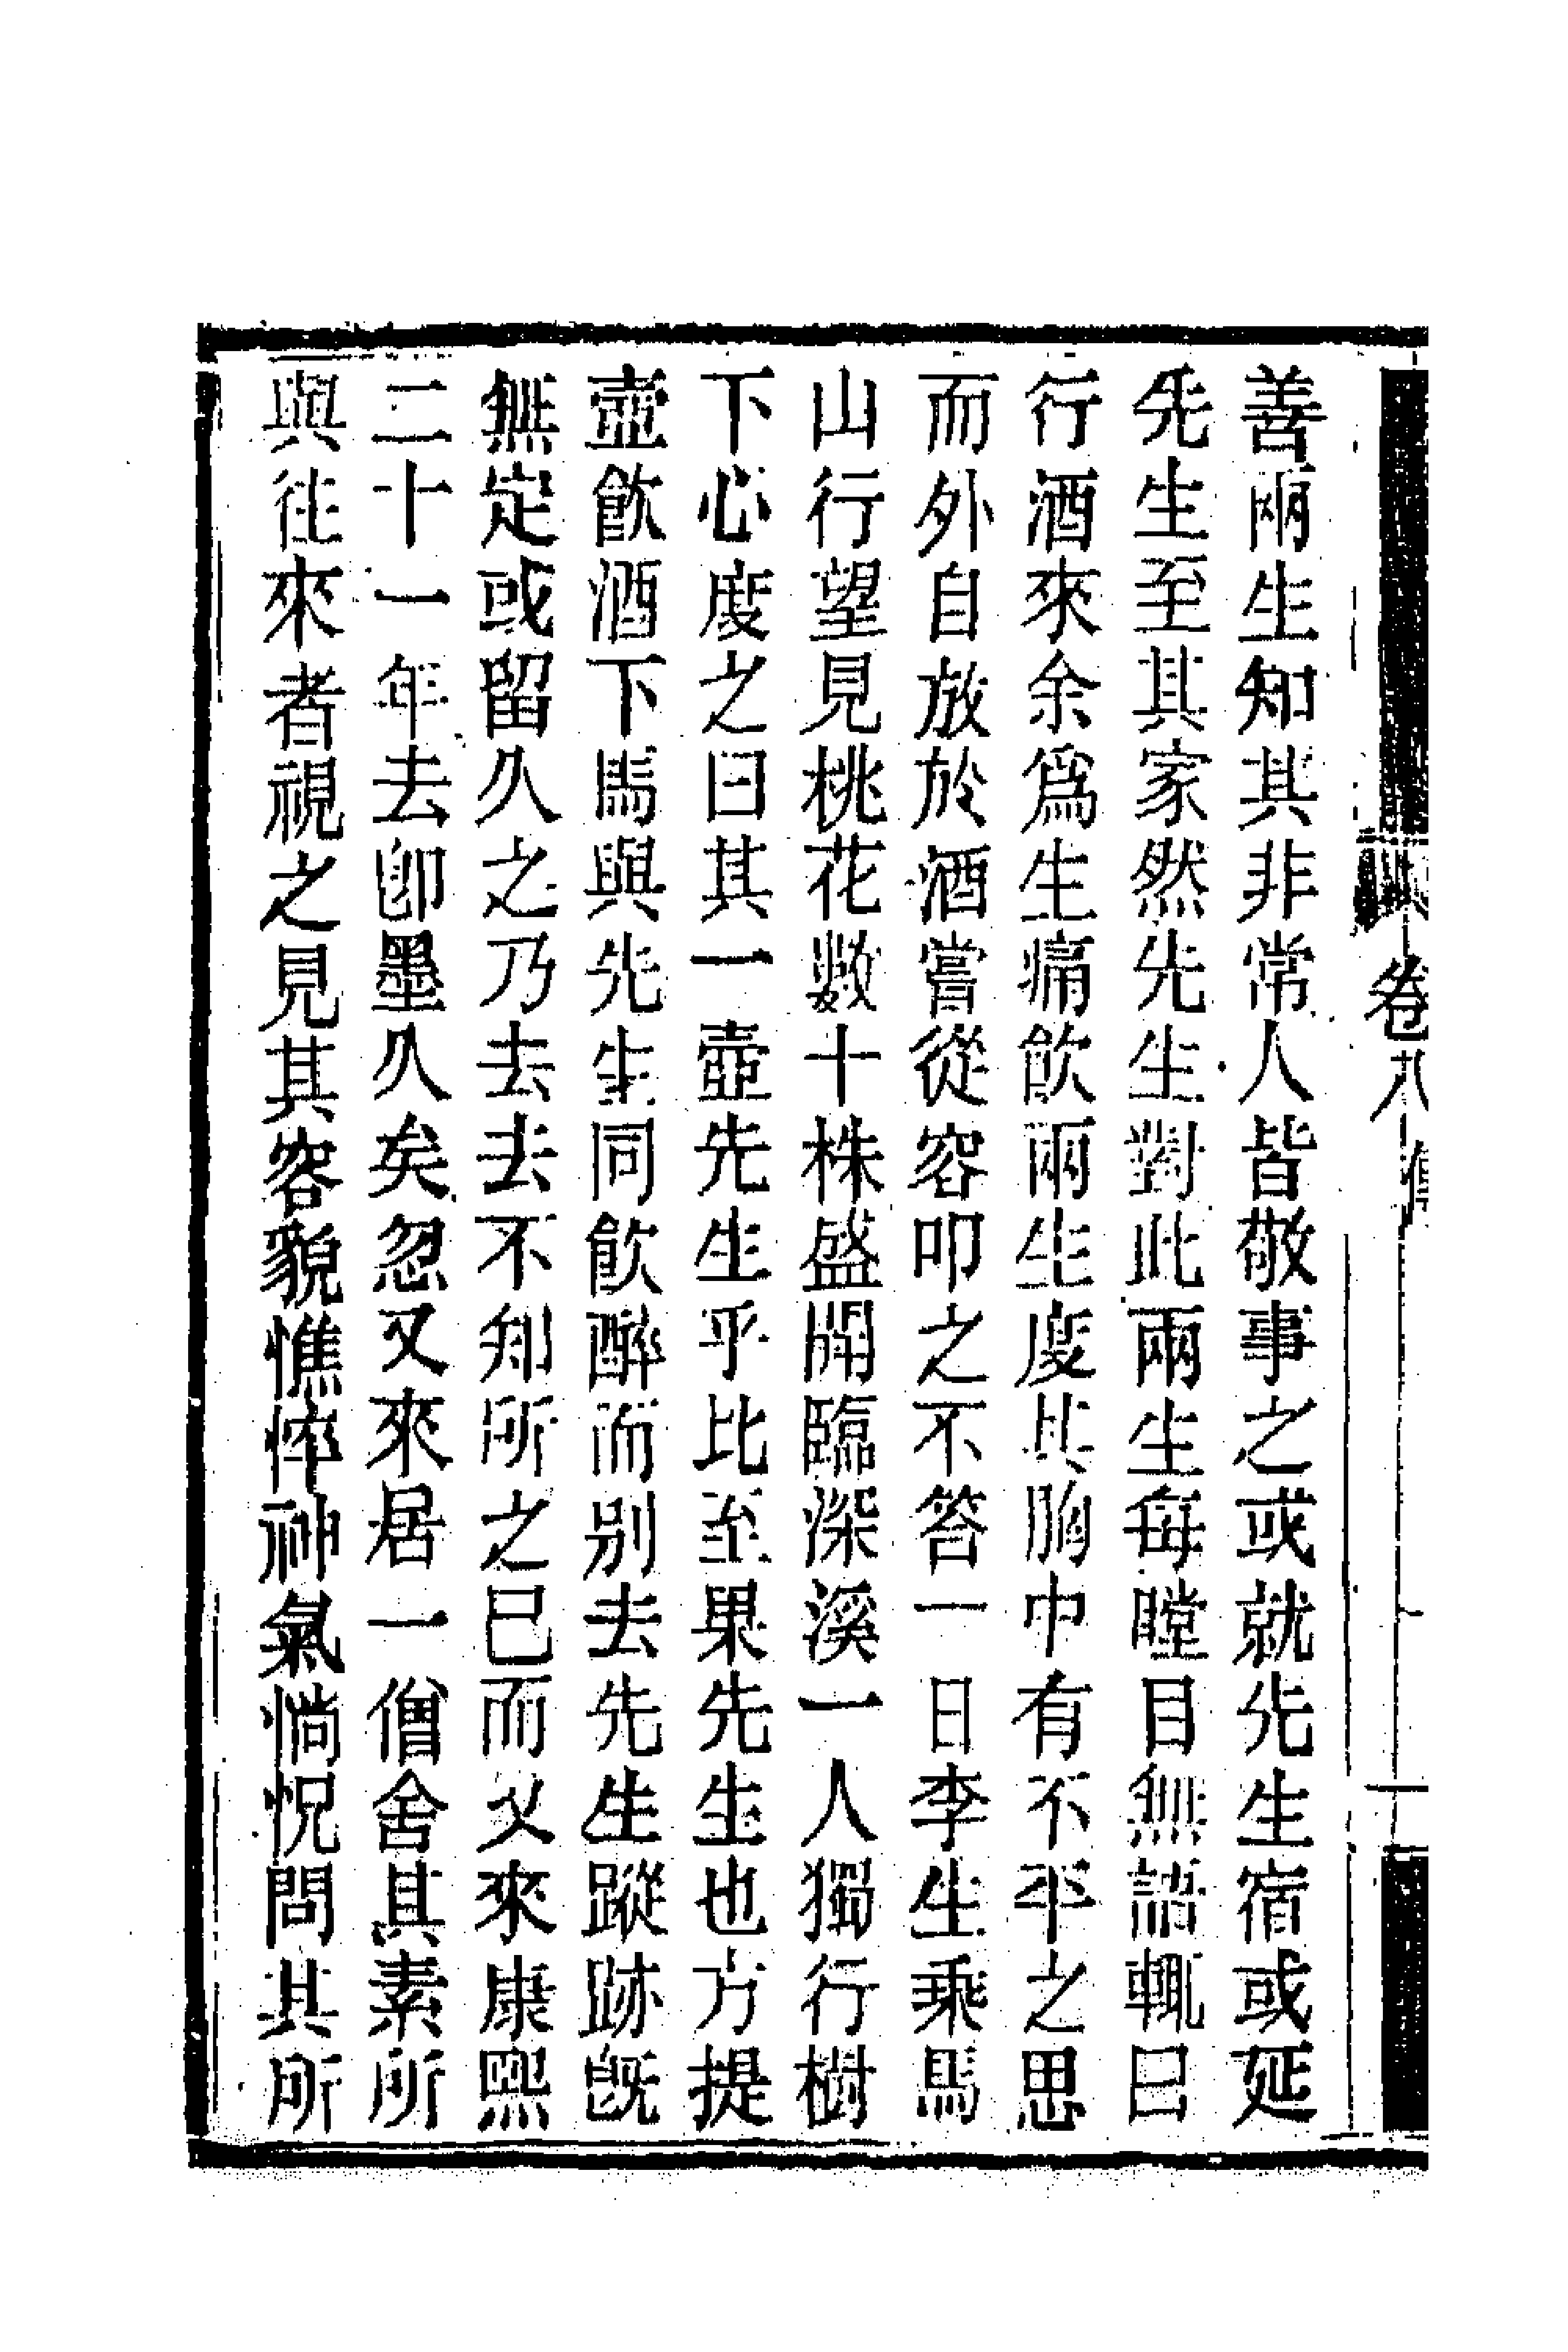 卷八
善兩生知其非常人皆敬事之或就先生宿或延
先生至其家然先生對此兩生每瞠目無語輒曰
行酒來余爲生痛飮兩生度其胸中有不平之思
而外自放於酒嘗從容叩之不答一日李生乘馬
山行望見桃花數十株盛開臨深溪一人獨行樹
下心度之曰其一壺先生乎比至果先生也方提
壺飮酒下馬與先生同飮醉而别去先生蹤跡旣
無定或留久之乃去去不知所之已而又來康熙
二十一年去卽墨久矣忽又來居一僧舍其素所
與往來者視之見其容貌憔悴神氣惝怳問其所